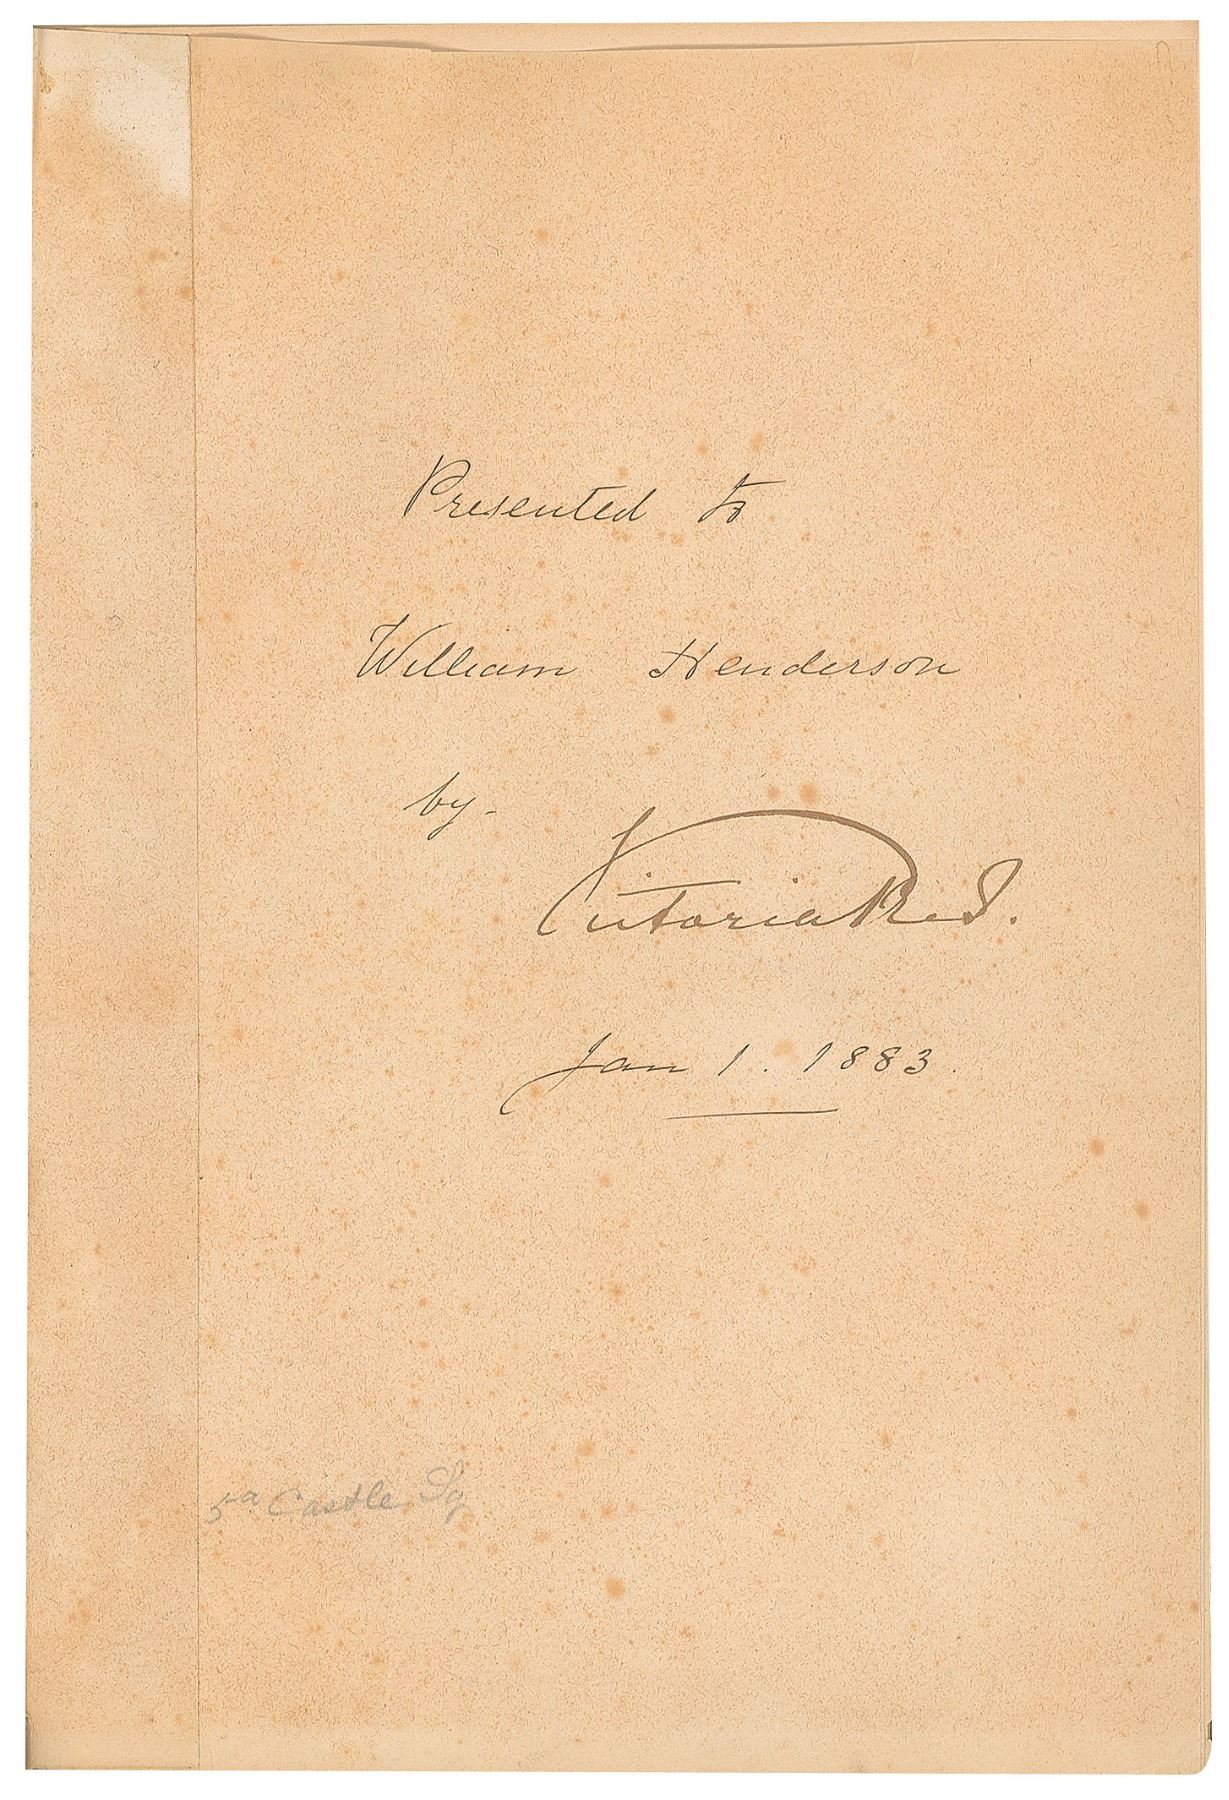 Presented to
William Henderson
by -
Victoria R. I.
Jan 1. 1883.
5a Castle Sq